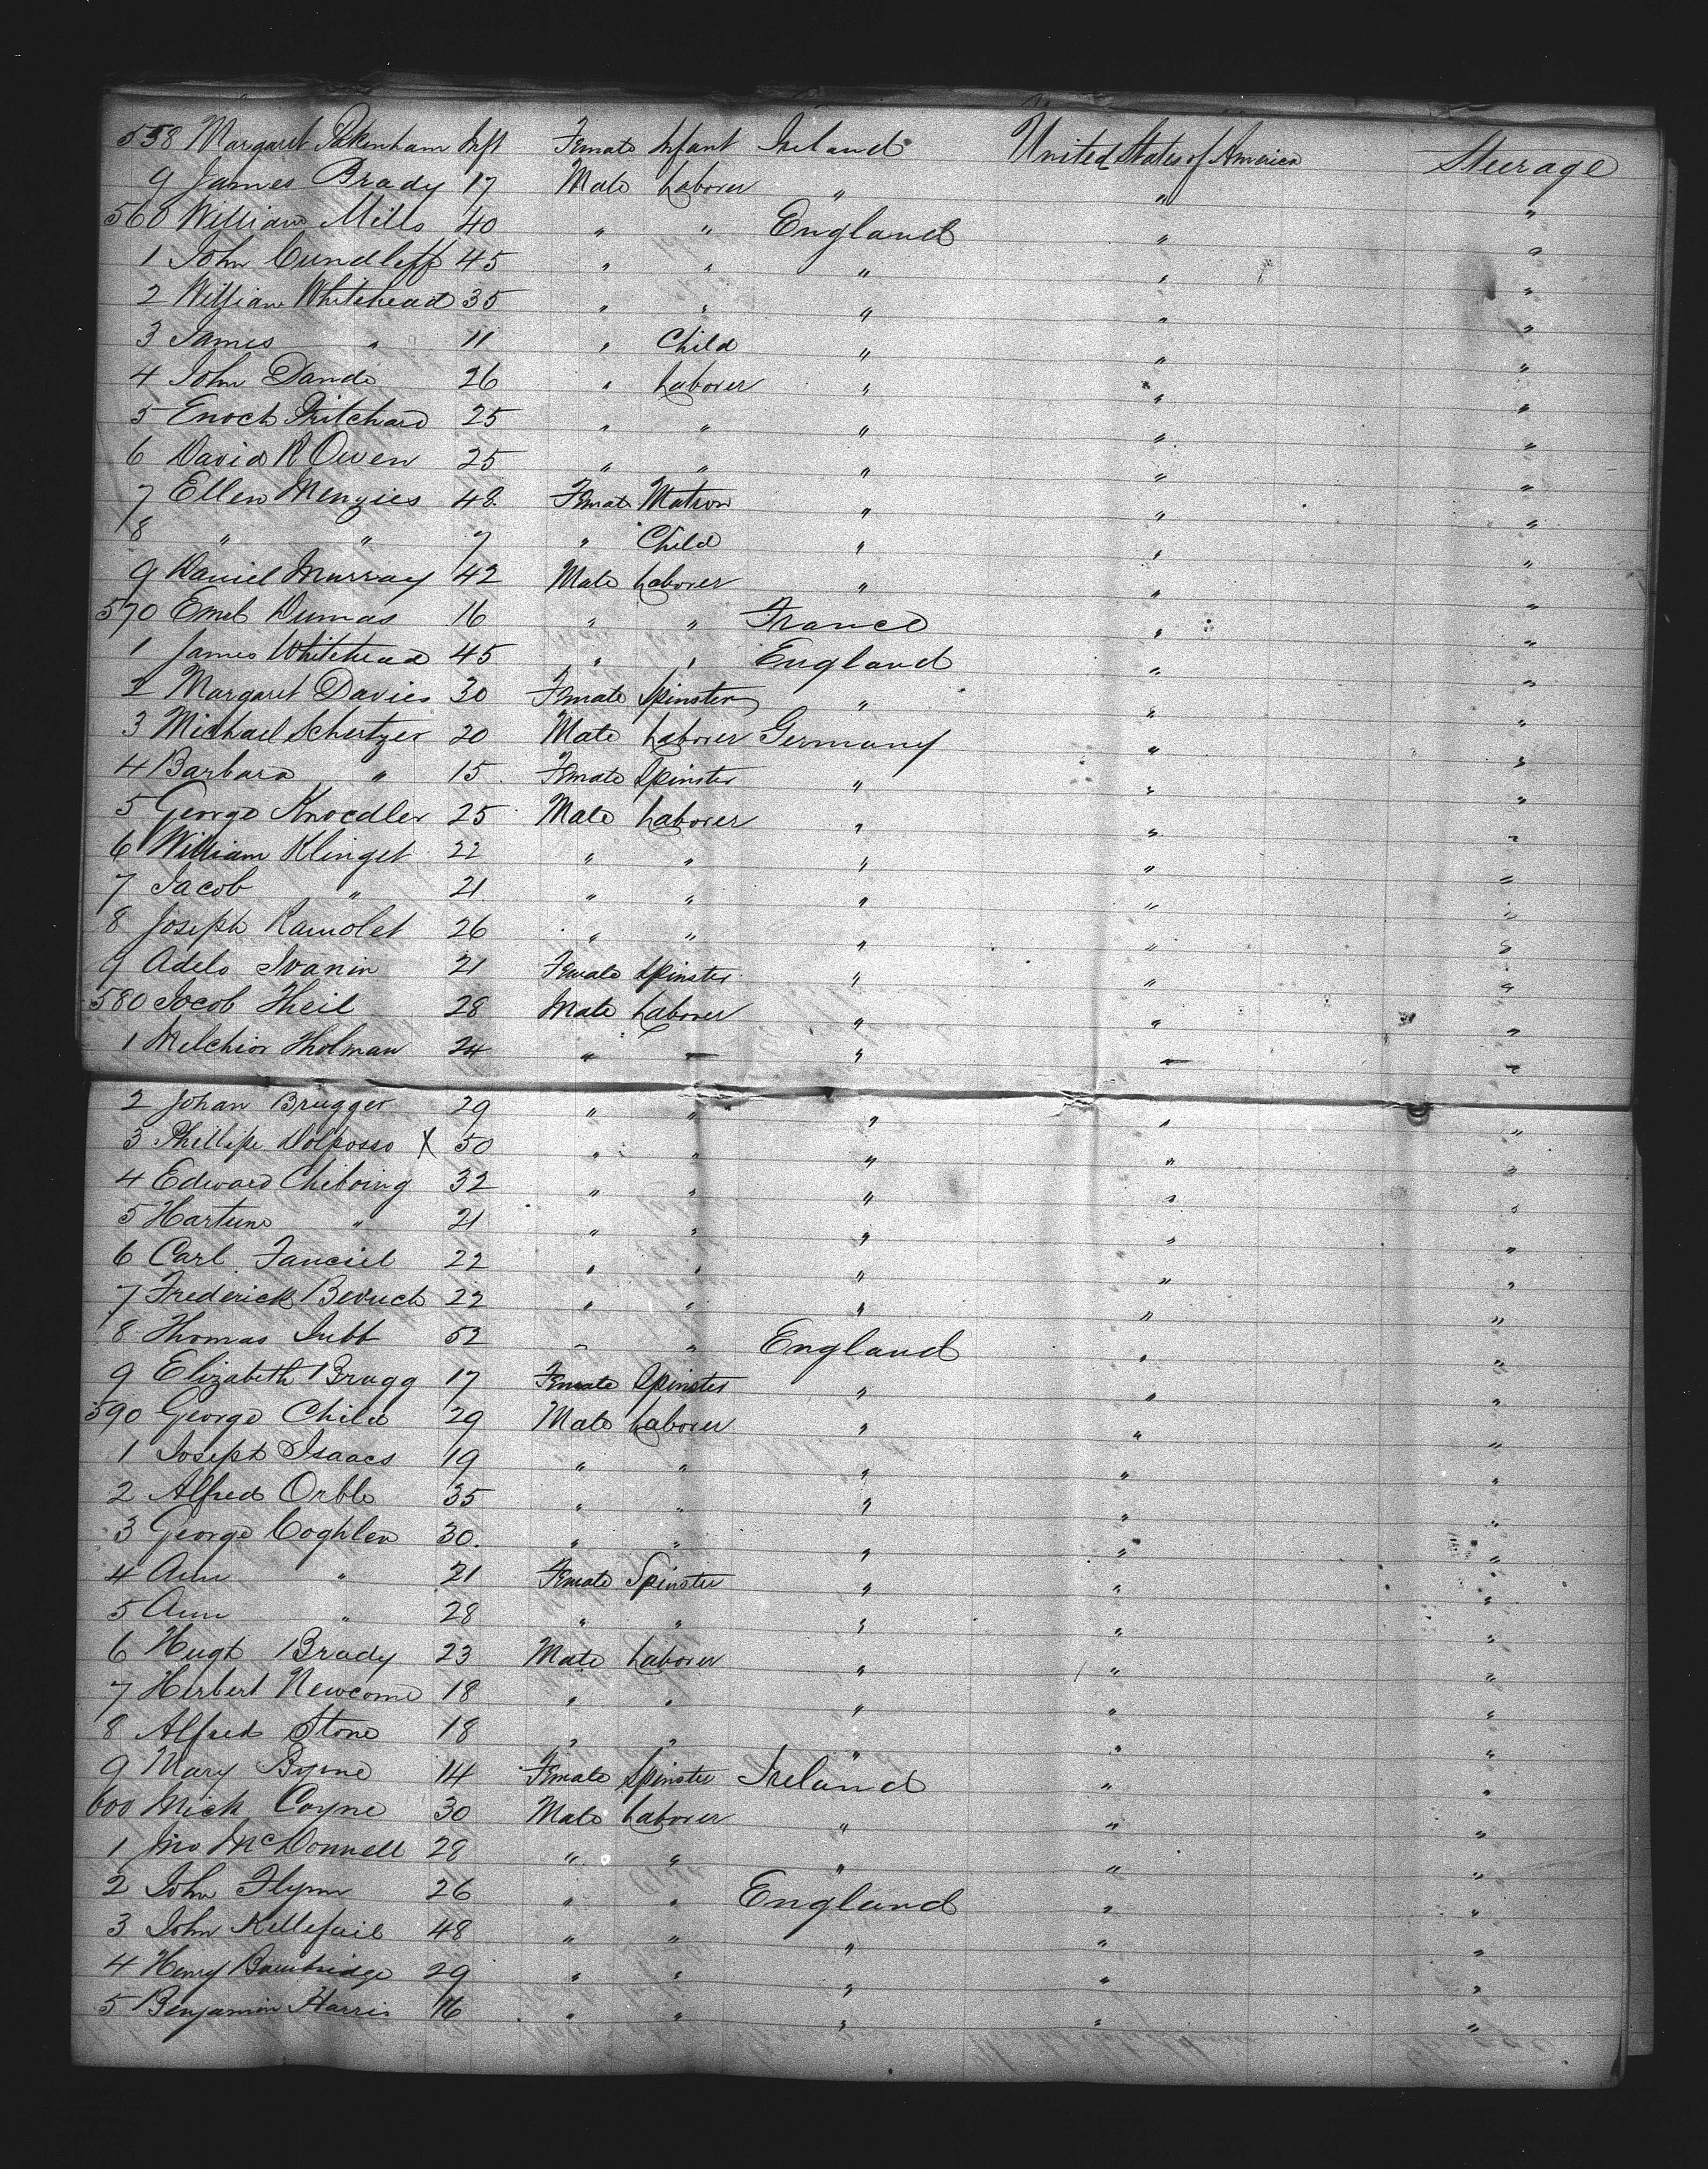 558 Margaret Pakenham Inft Female Infant Ireland United States of America Steerage
9 James Brady 17 Male Laborer " " "
560 William Mills 40 " " England " "
1 John Cundleff 45 " " " " "
2 William Whitehead 35 " " " " "
3 James " 11 " Child " " "
4 John Dando 26 " Laborer " " "
5 Enoch Pritchard 25 " " " " "
6 David R Owen 25 " " " " "
7 Ellen Menzies 48 Female Matron " " "
8 " " 7 " Child " " "
9 Daniel Murray 42 Male Laborer " " "
570 Emel Dumas 16 " " France " "
1 James Whitehead 45 " " England " "
2 Margaret Davies 30 Female Spinster " " "
3 Michael Schertzer 20 Male Laborer Germany " "
4 Barbara " 15 Female Spinster " " "
5 George Knoedler 25 Male Laborer " " "
6 William Klinget 22 " " " " "
7 Jacob " 21 " " " " "
8 Joseph Ramolet 26 " " " " "
9 Adelo Ivanin 21 Female Spinster " " "
580 Jocob Theil 28 Male Laborer " " "
1 Melchior Tholman 24 " " " " "
2 Johan Brugger 29 " " " " "
3 Phillipe Dolposso X 50 " " " " "
4 Edward Cheboing 32 " " " " "
5 Hartune " 21 " " " " "
6 Carl Fanciel 22 " " " " "
7 Frederick Bevuch 22 " " " " "
8 Thomas Jubb 52 " " England " "
9 Elizabeth Bragg 17 Female Spinster " " "
590 George Child 29 Male Laborer " " "
1 Joseph Isaacs 19 " " " " "
2 Alfred Orble 35 " " " " "
3 George Coghlen 30 " " " " "
4 Ann " 21 Female Spinster " " "
5 Ann " 28 " " " " "
6 Hugh Brady 23 Male Laborer " " "
7 Herbert Newcome 18 " " " " "
8 Alfred Stone 18 " " " " "
9 Mary Byrne 14 Female Spinster Ireland " "
600 Mick Coyne 30 Male Laborer " " "
1 Jno McDonnell 28 " " " " "
2 John Flynn 26 " " England " "
3 John Kellefail 48 " " " " "
4 Henry Bambridge 29 " " " " "
5 Benjamin Harris 16 " " " " "